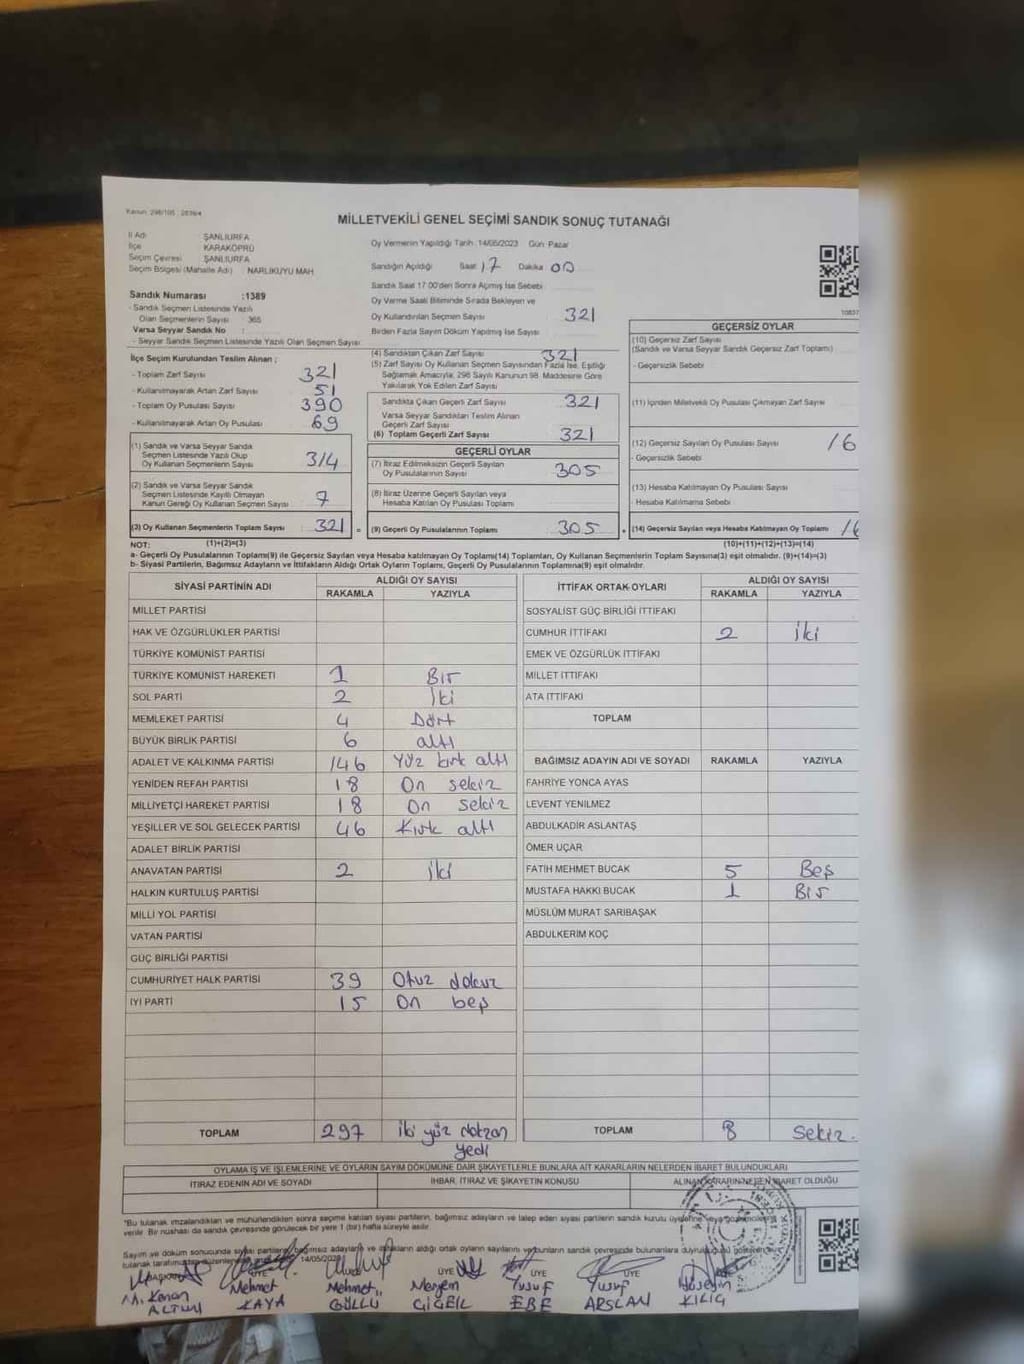 Kanun: 298/105 : 2839/4
MİLLETVEKİLİ GENEL SEÇİMİ SANDIK SONUÇ TUTANAĞI
İl Adı : ŞANLIURFA
İlçe : KARAKÖPRÜ
Seçim Çevresi : ŞANLIURFA
Seçim Bölgesi (Mahalle Adı) : NARLIKUYU MAH
Sandık Numarası :1389
- Sandık Seçmen Listesinde Yazılı
Olan Seçmenlerin Sayısı : 365
Varsa Seyyar Sandık No :
- Seyyar Sandık Seçmen Listesinde Yazılı Olan Seçmen Sayısı
Oy Vermenin Yapıldığı Tarih: 14/05/2023 Gün: Pazar
Sandığın Açıldığı Saat 17 Dakika 00
Sandık Saat 17:00'den Sonra Açılmış İse Sebebi
Oy Verme Saati Bitiminde Sırada Bekleyen ve
Oy Kullandırılan Seçmen Sayısı 321
Birden Fazla Sayım Döküm Yapılmış İse Sayısı
İlçe Seçim Kurulundan Teslim Alınan ;
- Toplam Zarf Sayısı 321
- Kullanılmayarak Artan Zarf Sayısı 51
- Toplam Oy Pusulası Sayısı 390
- Kullanılmayarak Artan Oy Pusulası 69
(1) Sandık ve Varsa Seyyar Sandık
Seçmen Listesinde Yazılı Olup
Oy Kullanan Seçmenlerin Sayısı 314
(2) Sandık ve Varsa Seyyar Sandık
Seçmen Listesinde Kayıtlı Olmayan
Kanun Gereği Oy Kullanan Seçmen Sayısı 7
(3) Oy Kullanan Seçmenlerin Toplam Sayısı 321
(4) Sandıktan Çıkan Zarf Sayısı 321
(5) Zarf Sayısı Oy Kullanan Seçmen Sayısından Fazla İse, Eşitliği
Sağlamak Amacıyla, 298 Sayılı Kanunun 98. Maddesine Göre
Yakılarak Yok Edilen Zarf Sayısı
Sandıkta Çıkan Geçerli Zarf Sayısı 321
Varsa Seyyar Sandıktan Teslim Alınan
Geçerli Zarf Sayısı
(6) Toplam Geçerli Zarf Sayısı 321
GEÇERLİ OYLAR
(7) İtiraz Edilmeksizin Geçerli Sayılan
Oy Pusulalarının Sayısı 305
(8) İtiraz Üzerine Geçerli Sayılan veya
Hesaba Katılan Oy Pusulası Toplamı
= (9) Geçerli Oy Pusulalarının Toplamı 305
10837
GEÇERSİZ OYLAR
(10) Geçersiz Zarf Sayısı
(Sandık ve Varsa Seyyar Sandık Geçersiz Zarf Toplamı)
- Geçersizlik Sebebi
(11) İçinden Milletvekili Oy Pusulası Çıkmayan Zarf Sayısı
(12) Geçersiz Sayılan Oy Pusulası Sayısı 16
- Geçersizlik Sebebi
(13) Hesaba Katılmayan Oy Pusulası Sayısı
Hesaba Katılmama Sebebi
+ (14) Geçersiz Sayılan veya Hesaba Katılmayan Oy Toplamı 16
NOT: (1)+(2)=(3) (10)+(11)+(12)+(13)=(14)
a- Geçerli Oy Pusulalarının Toplamı(9) ile Geçersiz Sayılan veya Hesaba katılmayan Oy Toplamı(14) Toplamları, Oy Kullanan Seçmenlerin Toplam Sayısına(3) eşit olmalıdır. (9)+(14)=(3)
b- Siyasi Partilerin, Bağımsız Adayların ve İttifakların Aldığı Ortak Oyların Toplamı, Geçerli Oy Pusulalarının Toplamına(9) eşit olmalıdır.
SİYASİ PARTİNİN ADI ALDIĞI OY SAYISI
RAKAMLA YAZIYLA
MİLLET PARTİSİ
HAK VE ÖZGÜRLÜKLER PARTİSİ
TÜRKİYE KOMÜNİST PARTİSİ
TÜRKİYE KOMÜNİST HAREKETİ 1 Bir
SOL PARTİ 2 İki
MEMLEKET PARTİSİ 4 Dört
BÜYÜK BİRLİK PARTİSİ 6 altı
ADALET VE KALKINMA PARTİSİ 146 Yüz kırk altı
YENİDEN REFAH PARTİSİ 18 On sekiz
MİLLİYETÇİ HAREKET PARTİSİ 18 On sekiz
YEŞİLLER VE SOL GELECEK PARTİSİ 46 Kırk altı
ADALET BİRLİK PARTİSİ
ANAVATAN PARTİSİ 2 İki
HALKIN KURTULUŞ PARTİSİ
MİLLİ YOL PARTİSİ
VATAN PARTİSİ
GÜÇ BİRLİĞİ PARTİSİ
CUMHURİYET HALK PARTİSİ 39 Otuz dokuz
İYİ PARTİ 15 On beş
TOPLAM 297 iki yüz doksan
yedi
İTTİFAK ORTAK OYLARI ALDIĞI OY SAYISI
RAKAMLA YAZIYLA
SOSYALİST GÜÇ BİRLİĞİ İTTİFAKI
CUMHUR İTTİFAKI 2 İki
EMEK VE ÖZGÜRLÜK İTTİFAKI
MİLLET İTTİFAKI
ATA İTTİFAKI
TOPLAM
BAĞIMSIZ ADAYIN ADI VE SOYADI RAKAMLA YAZIYLA
FAHRİYE YONCA AYAS
LEVENT YENİLMEZ
ABDULKADİR ASLANTAŞ
ÖMER UÇAR
FATİH MEHMET BUCAK 5 Beş
MUSTAFA HAKKI BUCAK 1 Bir
MÜSLÜM MURAT SARIBAŞAK
ABDULKERİM KOÇ
TOPLAM 8 Sekiz.
OYLAMA İŞ VE İŞLEMLERİNE VE OYLARIN SAYIM DÖKÜMÜNE DAİR ŞİKAYETLERLE BUNLARA AİT KARARLARIN NELERDEN İBARET BULUNDUKLARI
İTİRAZ EDENİN ADI VE SOYADI İHBAR, İTİRAZ VE ŞİKAYETİN KONUSU ALINAN KARARIN NEDEN İBARET OLDUĞU
"Bu tutanak imzalandıktan ve mühürlendikten sonra seçime katılan siyasi partilerin, bağımsız adayların ve talep eden siyasi partilerin sandık kurulu üyelerine veya
verilir. Bir nüshası da sandık çevresinde görülecek bir yere 1 (bir) hafta süreyle asılır.
Sayım ve döküm sonucunda siyasi partilerin, bağımsız adayların ve ittifakların aldığı ortak oyların sayıları ve bunların sandık çevresinde bulunanlara duyurulduğunu gösteren
tutanak tarafımızdan düzenlenip 14/05/2023
BAŞKAN ÜYE ÜYE ÜYE ÜYE
M. Kenan Mehmet Mehmet Meryem Yusuf Yusuf Hüseyin
ALTUN KAYA GÜLLÜ EBE ARSLAN KILIÇ